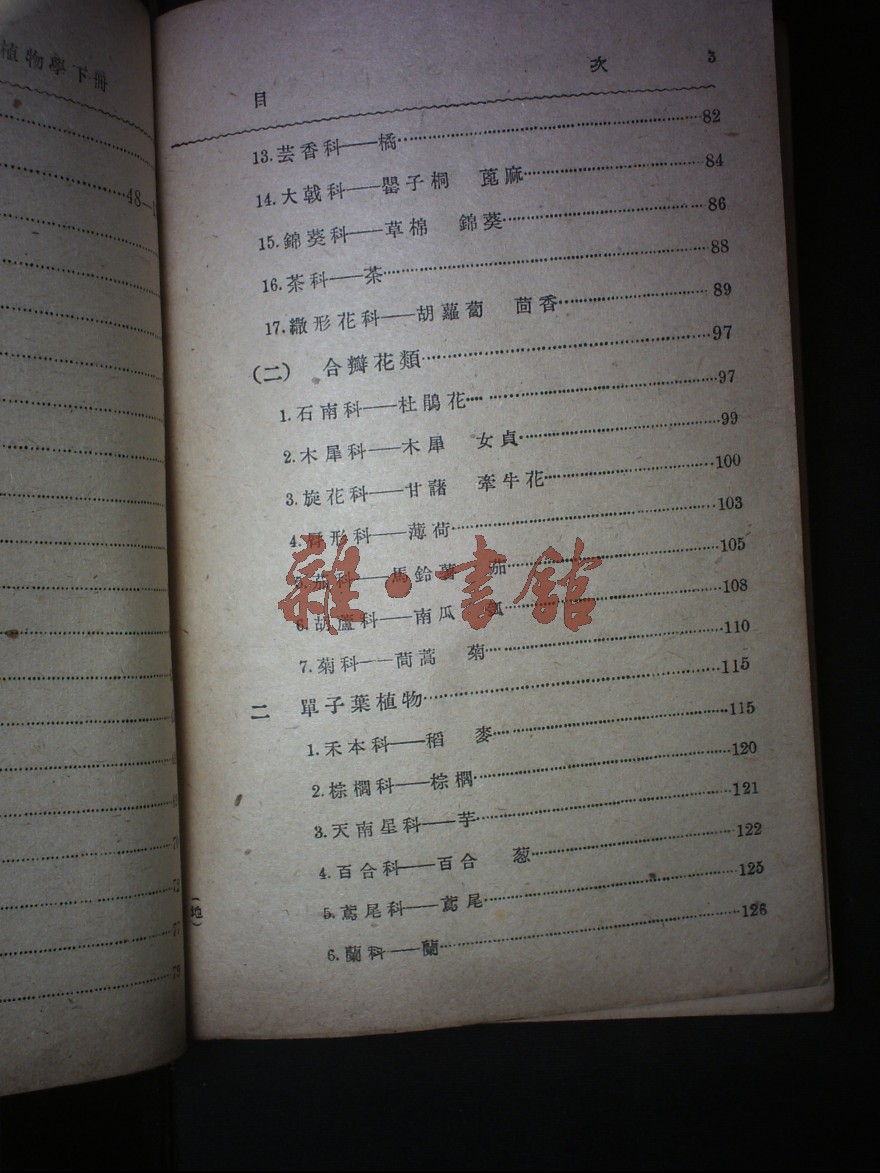 植物學下冊
48—
70
72
77
79
目 次 3
13.芸香科——橘……82
14.大戟科——罌子桐 蓖麻……84
15.錦葵科——草棉 錦葵……86
16.茶科——茶……88
17.繖形花科——胡蘿蔔 茴香……89
(二) 合瓣花類……97
1.石南科——杜鵑花……97
2.木犀科——木犀 女貞……99
3.旋花科——甘藷 牽牛花……100
4.脣形科——薄荷……103
5.茄科——馬鈴薯 茄……105
6.胡蘆科——南瓜 瓠……108
7.菊科——茼蒿 菊……110
二 單子葉植物……115
1.禾本科——稻 麥……115
2.棕櫚科——棕櫚……120
3.天南星科——芋……121
4.百合科——百合 葱……122
5.鳶尾科——鳶尾……125
6.蘭科——蘭……126
(地)
雜·書館